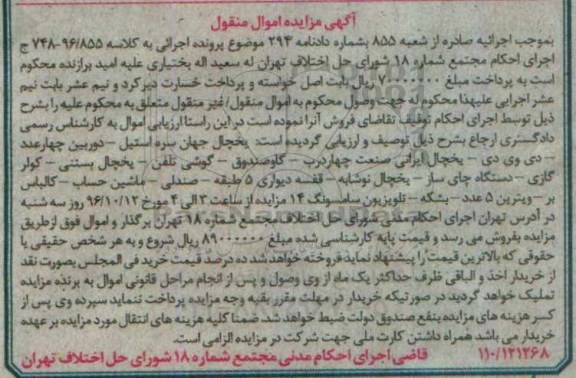 آگهی مزایده اموال منقول
بموجب اجرائیه صادره از شعبه ۸۵۵ بشماره دادنامه ۲۹۴ موضوع پرونده اجرائی به کلاسه ۹۶/۸۵۵-۷۴۸ ج
اجرای احکام مجتمع شماره ۱۸ شورای حل اختلاف تهران له سعید اله بختیاری علیه امید برازنده محکوم
است به پرداخت مبلغ ۷۰۰۰۰۰۰۰ ریال بابت اصل خواسته و پرداخت خسارت دیرکرد و نیم عشر بابت نیم
عشر اجرایی علیهذا محکوم له جهت وصول محکوم به اموال منقول/غیر منقول متعلق به محکوم علیه را بشرح
ذیل توسط اجرای احکام توقیف تقاضای فروش آنرا نموده است در این راستا ارزیابی اموال به کارشناس رسمی
دادگستری ارجاع بشرح ذیل توصیف و ارزیابی گردیده است: یخچال جهان سره استیل – دوربین چهارعدد
– دی وی دی – یخچال ایرانی صنعت چهاردرب – گاوصندوق – گوشی تلفن – یخچال بستنی – کولر
گازی – دستگاه چای ساز – یخچال نوشابه – قفسه دیواری ۵ طبقه – صندلی – ماشین حساب – کالباس
بر – ویترین ۵ عدد – بشکه – تلویزیون سامسونگ ۱۴ مزایده از ساعت ۳ الی ۴ مورخ ۹۶/۱۰/۱۲ روز سه شنبه
در آدرس تهران اجرای احکام مدنی شورای حل اختلاف مجتمع شماره ۱۸ تهران برگذار و اموال فوق ازطریق
مزایده بفروش می رسد و قیمت پایه کارشناسی شده مبلغ ۸۹۰۰۰۰۰۰ ریال شروع و به هر شخص حقیقی یا
حقوقی که بالاترین قیمت را پیشنهاد نماید فروخته خواهد شد ده درصد قیمت خرید فی المجلس بصورت نقد
از خریدار اخذ و الباقی ظرف حداکثر یک ماه از وی وصول و پس از انجام مراحل قانونی اموال به برنده مزایده
تملیک خواهد گردید در صورتیکه خریدار در مهلت مقرر بقیه وجه مزایده پرداخت ننماید سپرده وی پس از
کسر هزینه های مزایده بنفع صندوق دولت ضبط خواهد شد. ضمنا کلیه هزینه های انتقال مورد مزایده بر عهده
خریدار می باشد همراه داشتن کارت ملی جهت شرکت در مزایده الزامی است.
۱۱۰/۱۲۱۲۶۸ قاضی اجرای احکام مدنی مجتمع شماره ۱۸ شورای حل اختلاف تهران